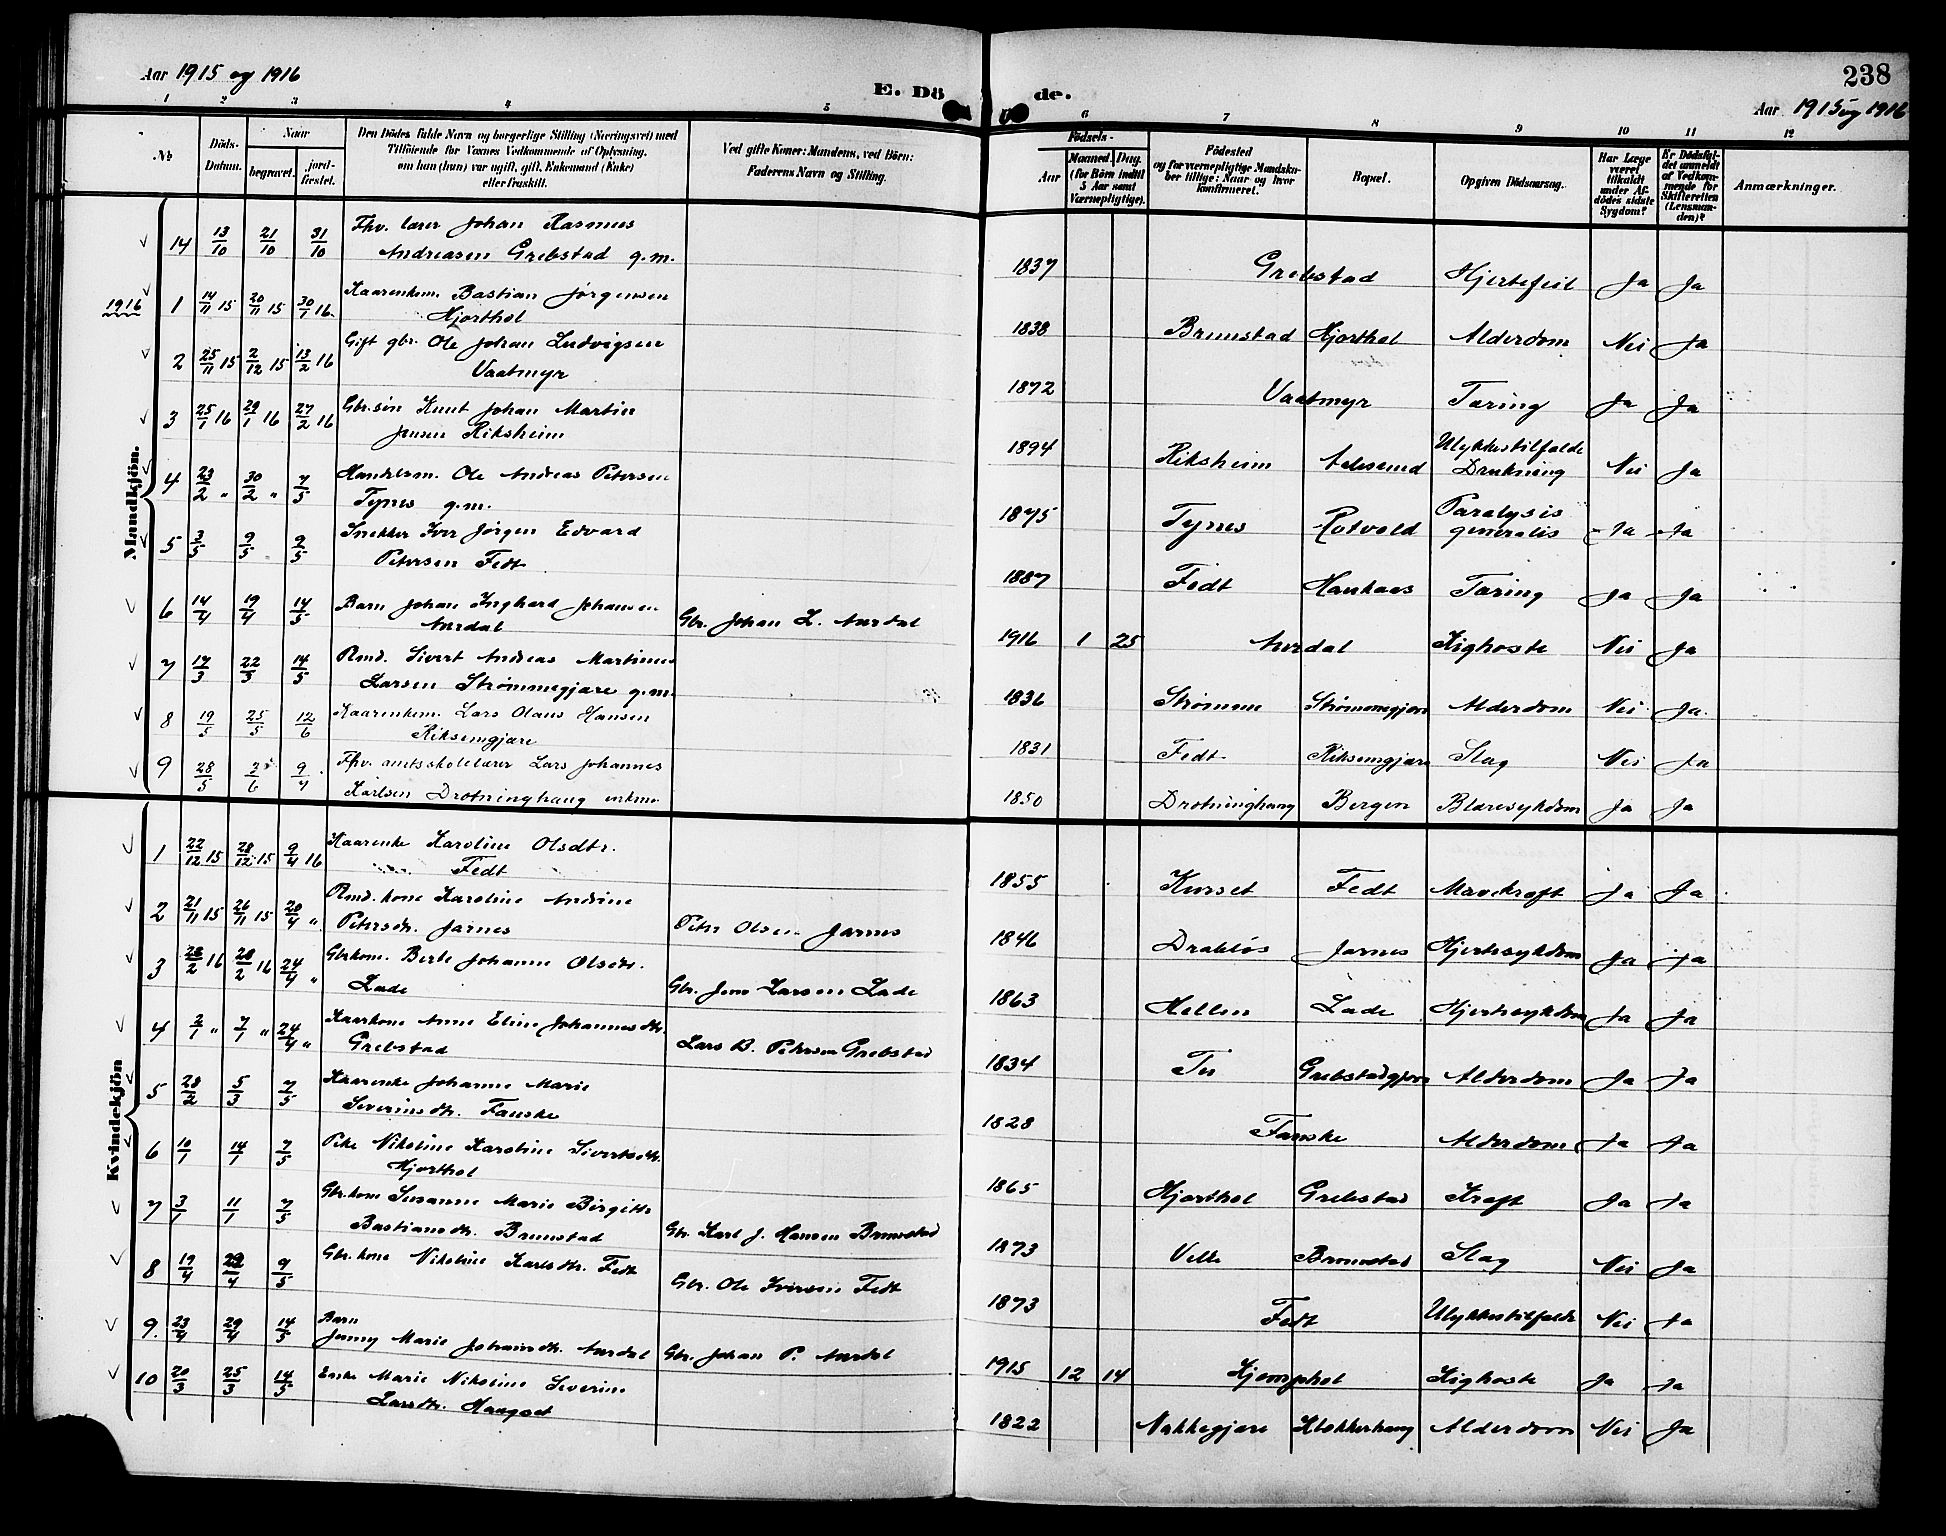 Aar 1915 og 1916
E. Dö de.
238
Aar 1915 og 1916
1 2 3 4 5 6 7 8 9 10 11 12
No
Döds-Datum.
Naar
begravet.
jord-fæstet.
Den Dödes fulde Navn og borgerlige Stilling (Næringsvei) med
Tilföiende for Voxnes Vedkommende af Oplysning,
om han (hun) var ugift, gift, Enkemand (Enke)
eller fraskilt.
Ved gifte Koner: Mandens, ved Börn:
Faderens Navn og Stilling.
Födsels-
Aar
Maaned. Dag.
(for Börn indtil
5 Aar samt
Værnepligtige).
Födested
og for værnepligtige Mandska-
ber tillige: Naar og hvor
konfirmeret.
Bopæl.
Opgiven Dödsaarsag.
Har Læge
været
tilkaldt
under Af-
dödes sidste
Sygdom?
Er Dödsfal-
det anmeldt
af Vedkom-
mende for
Skifteretten
(Lensman-
den)?
Anmærkninger.
Mandkjön.
14 13/10 21/10 31/10 Fhv. lærer Johan Rasmus
Andreasen Grebstad g.m. 1837 Grebstad Hjertefeil Ja Ja
1916 1 14/11 15 20/11 15 30/1 16 Kaarenkem. Bastian Jørgensen
Hjorthol 1838 Brunstad Hjorthol Alderdom Nei Ja
2 25/11 15 2/12 15 13/2 16 Gift gbr. Ole Johan Ludvigsen
Vaatmyr 1872 Vaatmyr Tæring Ja Ja
3 25/1 16 29/1 16 27/2 16 Gbr.søn Knut Johan Martin
Jensen Riksheim 1894 Riksheim Aalesund Ulykkestilfælde
Drukning Nei Ja
4 23/2 " 30/2 " 7/5 Handelsm. Ole Andreas Petersen
Tynes g.m. 1875 Tynes Rotvold Paralysis
generalis Ja Ja
5 3/5 9/5 9/5 Snekker Iver Jørgen Edvard
Petersen Fedt 1887 Fedt Haukaas Tæring Ja Ja
6 14/4 19/4 14/5 Barn Johan Inghard Johansen
Aurdal Gbr. Johan L. Aurdal 1916 1 25 Aurdal Kighoste Nei Ja
7 17/3 22/3 14/5 Rmd. Sivert Andreas Martinus
Larsen Strømmegjære g.m. 1836 Strømme Strømmegjære Alderdom Nei Ja
8 19/5 25/5 12/6 Kaarenkem. Lars Olaus Hansen
Riksemgjære 1831 Fedt Riksemgjære Slag Nei Ja
9 28/5 2/6 9/7 Fhv. amtsskolelærer Lars Johannes
Karlsen Drotninghaug enkm. 1850 Drotninghaug Bergen Blæresykdom Ja Ja
Kvindekjön
1 22/12 15 28/12 15 9/4 16 Kaarenke Karoline Olsdtr.
Fedt 1855 Kurset Fedt Mavekræft Ja Ja
2 21/11 15 26/11 15 20/4 " Rmd. kone Karoline Andrine
Petersdtr. Jarnes Peter Olsen Jarnes 1846 Drabløs Jarnes Hjertesykdom Ja Ja
3 28/2 16 28/2 16 24/4 " Gbrkone. Berte Johanne Olsdtr.
Lade Gbr. Jens Larsen Lade 1863 Hellen Lade Hjertesykdom Ja Ja
4 2/1 " 7/1 " 24/4 " Kaarkone Anne Eline Johannesdtr.
Grebstad Lars B. Petersen Grebstad 1834 Tu Grebstadgjære Alderdom Ja Ja
5 28/2 5/3 7/5 Kaarenke Johanne Marie
Severinsdtr. Fauske 1828 Fauske Alderdom Ja Ja
6 10/1 14/1 7/5 Pike Nikoline Karoline Sivertsdtr.
Hjorthol 1865 Hjorthol Grebstad Kræft Ja Ja
7 3/1 11/1 7/5 Gbr.kone Susanne Marie Birgitte
Bastiansdtr. Brunstad Gbr. Karl J. Hansen Brunstad 1873 Velle Brunstad Slag Nei Ja
8 19/4 29/4 9/5 Gbr. kone Nikoline Karlsdtr. Fedt Gbr. Ole Iversen Fedt 1873 Fedt Ulykkestilfælde Nei Ja
9. 23/4 29/4 14/5 Barn
Jenny Marie Johansdtr. Aurdal Gbr. Johan P. Aurdal 1915 12 14 Hjemphol Kighoste Ja Ja
10 20/3 25/3 14/5 Enke Marie Nikoline Severine
Larsdtr. Haugset 1822 Nakkegjære Klokkerhaug Alderdom Nei Ja